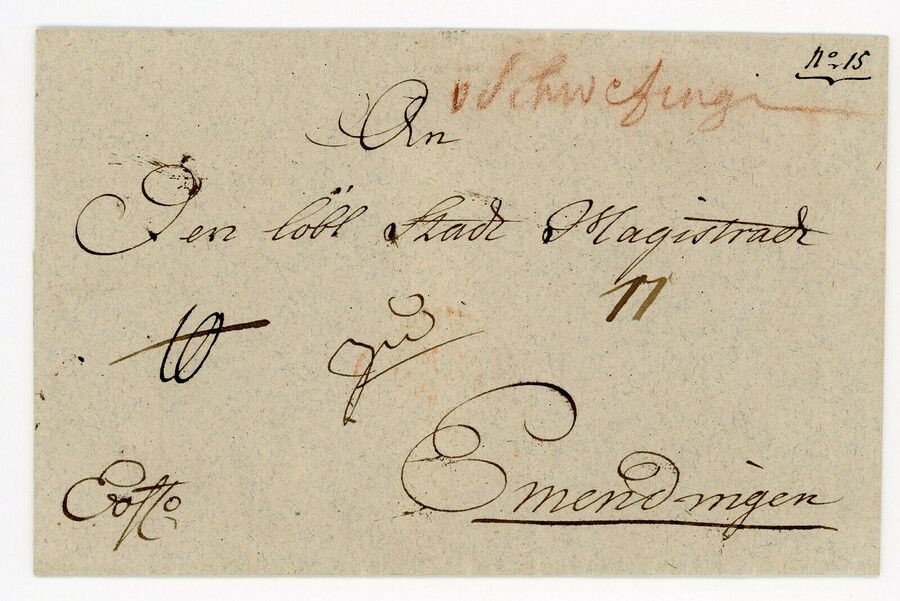 No 15
v Schwezinge
An
Den löbl Stadt Magistradt
11
10
zu
Emendingen